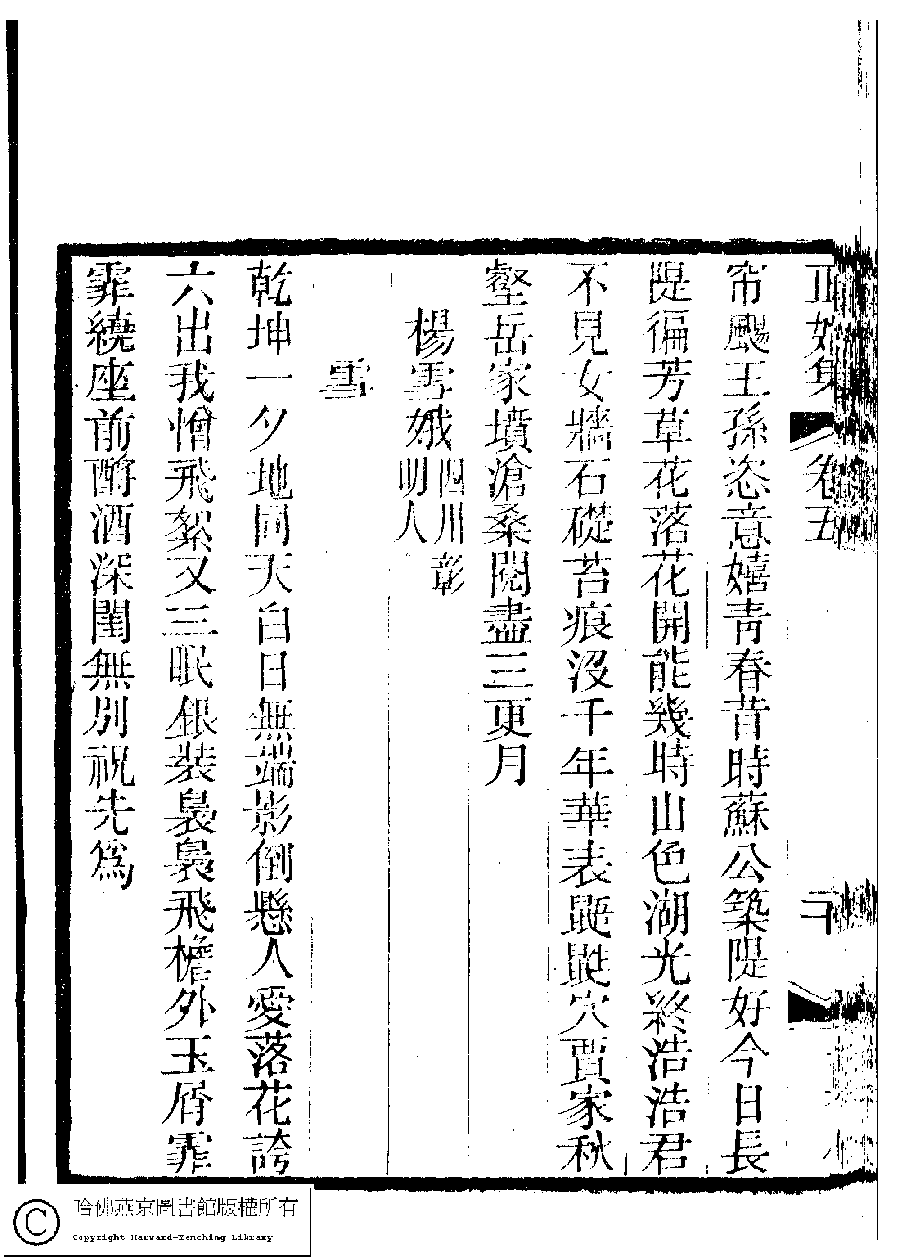 正始集 卷五 二十
帘颺王孫恣意嬉青春昔時蘇公築隄好今日長
隄徧芳草花落花開能幾時山色湖光終浩浩君
不見女牆石礎苔痕沒千年華表鼯鼪穴賈家秋
壑岳家墳滄桑閱盡三更月
楊雪娥四川彰
明人
雪
乾坤一夕地同天白日無端影倒懸人愛落花誇
六出我憎飛絮又三眠銀裝裊裊飛檐外玉屑霏
霏繞座前酹酒深閨無別祝先爲
哈佛燕京圖書館版權所有
Copyright Harvard-Yenching Library